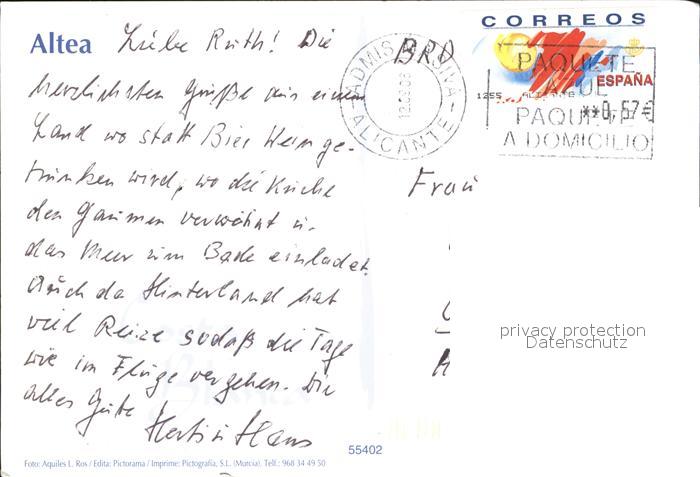 Altea
Liebe Ruth! Die
herzlichsten Grüße aus einem
Land wo statt Bier Wein ge-
trunken wird, wo die Küche
den Gaumen verwöhnt u.
das Meer zum Bade einladet.
Auch das Hinterland hat
viel Reize sodaß die Tage
wie im Fluge vergehen. Dir
alles Gute!
Hans
Foto: Aquiles L. Ros / Edita: Pictorama / Imprime: Pictografía, S.L. (Murcia). Telf.: 968 34 49 50
55402
BRD
ALICANTE
CORREOS
ESPAÑA
1255
**0,57€
PAQUETE
AZUL
PAQUETE
A DOMICILIO
Frau
privacy protection
Datenschutz